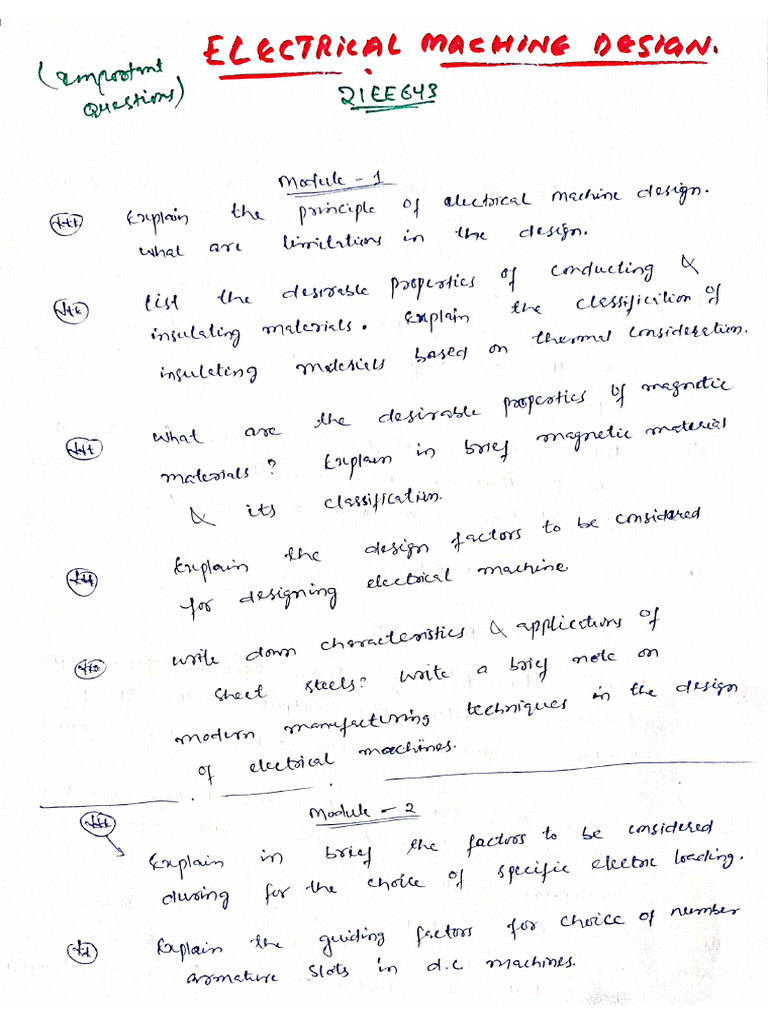 ELECTRICAL MACHINE DESIGN.
(Important
Questions)
21EE643
Module - 1
*** Explain the principle of electrical machine design.
What are limitations in the design.
*** List the desirable properties of conducting &
insulating materials. Explain the classification of
insulating materials based on thermal consideration.
*** What are the desirable properties of magnetic
materials? Explain in brief magnetic material
& its classification.
*** Explain the design factors to be considered
for designing electrical machine.
*** Write down characteristics & applications of
sheet steels? Write a brief note on
modern manufacturing techniques in the design
of electrical machines.
Module - 2
*** Explain in brief the factors to be considered
during for the choice of specific electric loading.
** Explain the guiding factors for choice of number
armature slots in d.c machines.